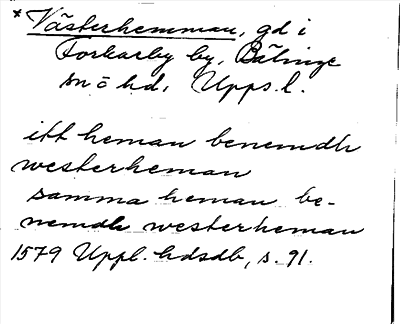 * Västerhemman, gd i
Forkarby by, Bälinge
sn o hd, Upps. l.
itt heman benemdh
westerheman
samma heman be-
nemdh westerheman
1579 Uppl. hdsdb, s. 91.